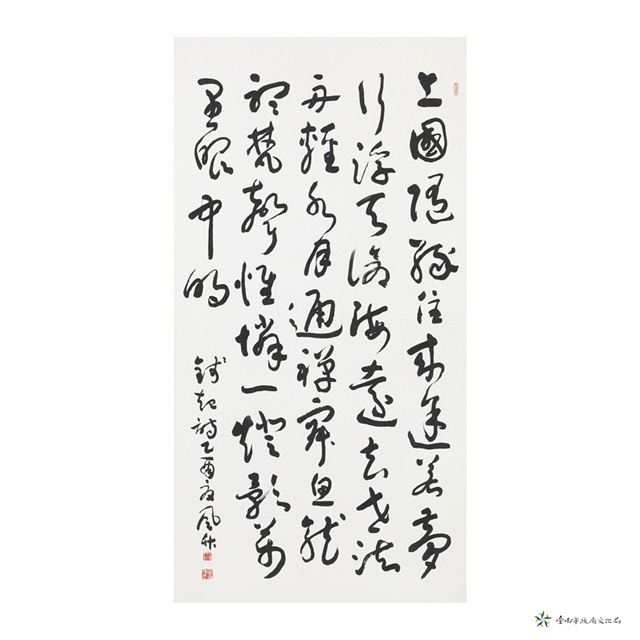 上國隨緣住來途若夢
行浮天滄海遠去世法
舟輕水月通禪寂魚龍
聽梵聲惟憐一燈影萬
里眼中明
錢起詩乙酉夏風
臺南市政府文化局